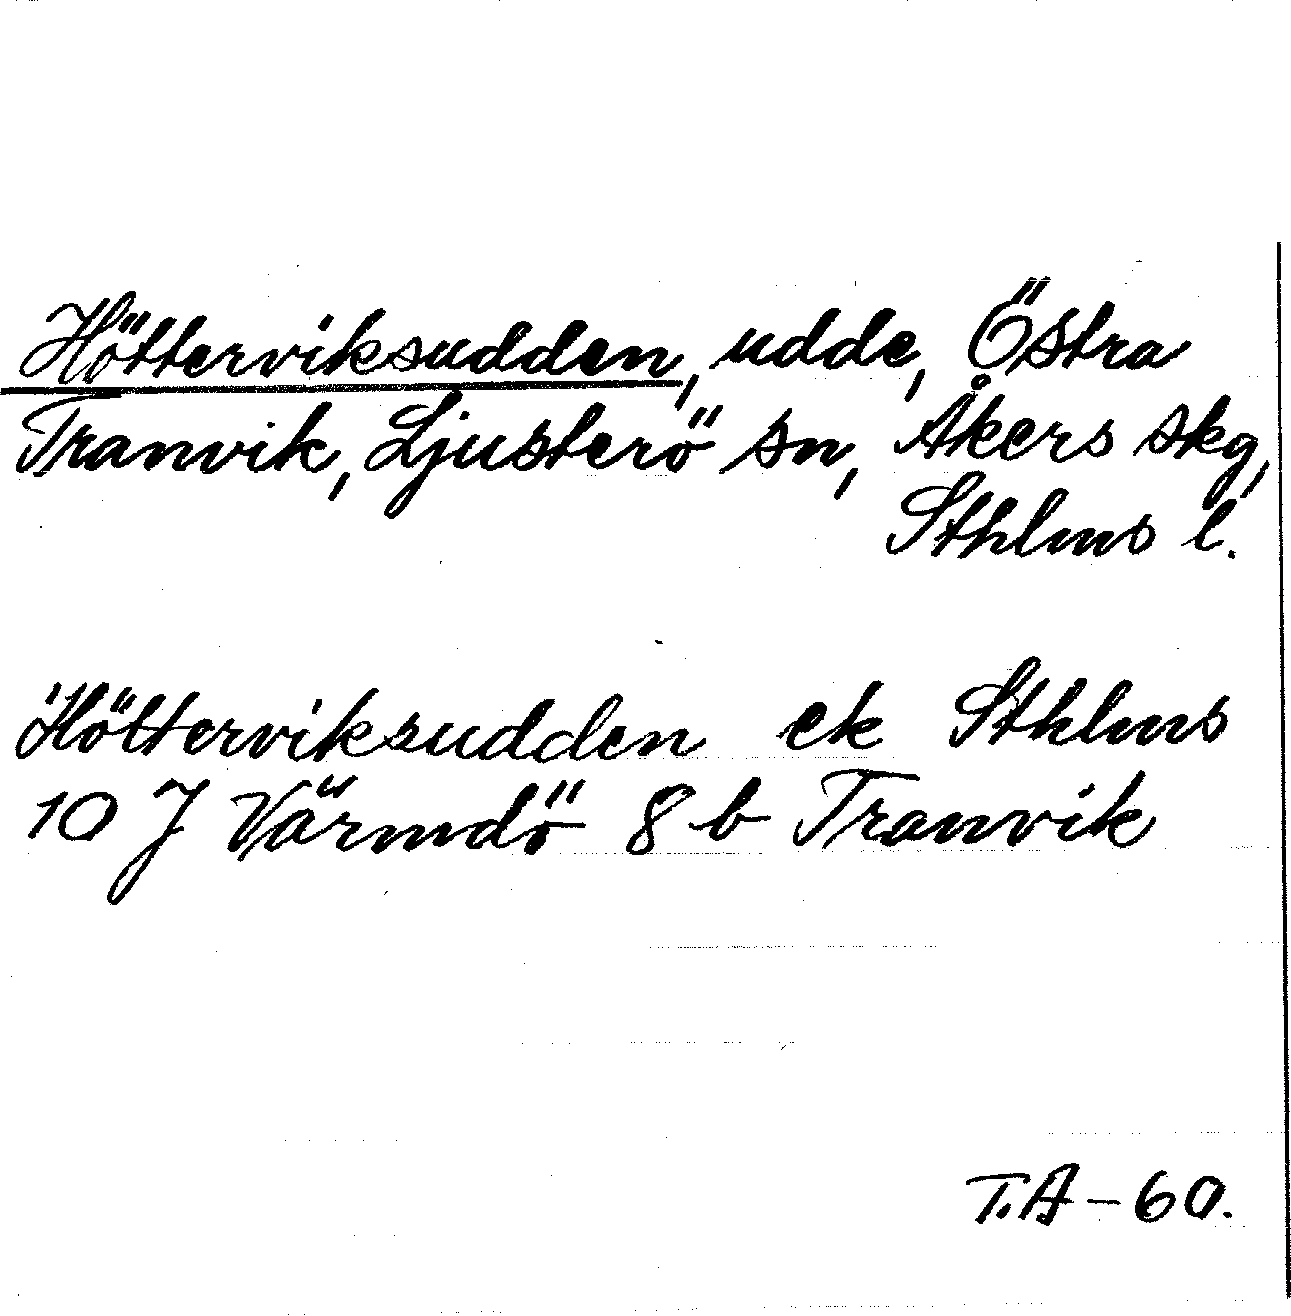 Hötterviksudden, udde, Östra
Tranvik, Ljusterö sn, Åkers skg,
Sthlms l.
Hötterviksudden ek Sthlms
10 J Värmdö 8 b Tranvik
T.A-60.